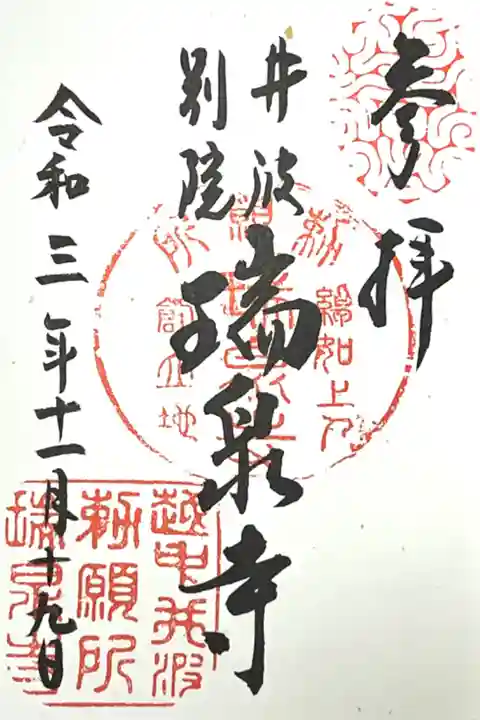 参拝
井波
別院
瑞泉寺
令和三年十一月十九日
勅願所
綽如上人
創立地
瑞泉寺
越中井波
勅願所
瑞泉寺